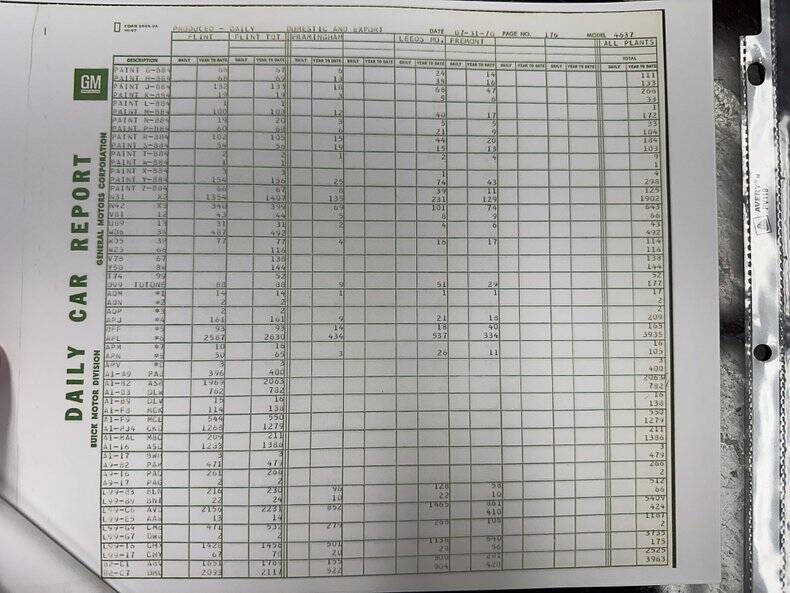 FORM 2008-UA
PRODUCED - DAILY DOMESTIC AND EXPORT DATE 07-31-70 PAGE NO. 176 MODEL 4637
FLINT FLINT TOT FRAMINGHAM LEEDS MO. FREMONT ALL PLANTS
TOTAL
DESCRIPTION DAILY YEAR TO DATE DAILY YEAR TO DATE DAILY YEAR TO DATE DAILY YEAR TO DATE DAILY YEAR TO DATE DAILY YEAR TO DATE DAILY YEAR TO DATE DAILY YEAR TO DATE DAILY YEAR TO DATE
GM
DAILY CAR REPORT
GENERAL MOTORS CORPORATION
BUICK MOTOR DIVISION
PAINT G-884 66 67 6 24 14 111
PAINT H-884 68 69 13 35 16 133
PAINT J-884 132 133 18 68 47 266
PAINT K-884 19 19 3 5 6 33
PAINT L-884 1 1 1
PAINT M-884 100 103 12 40 17 172
PAINT N-884 19 20 3 5 5 33
PAINT P-884 60 68 6 21 9 104
PAINT R-884 102 105 15 44 20 184
PAINT S-884 54 56 19 15 13 103
PAINT T-884 2 2 1 2 4 9
PAINT W-884 1 1 1
PAINT X-884 3 3 1 4
PAINT Y-884 154 156 25 74 43 298
PAINT Z-884 66 67 8 39 11 125
N31 X2 1354 1407 135 231 129 1902
N42 X3 348 394 69 101 74 643
V81 12 43 44 5 8 9 66
U89 13 31 31 2 4 6 43
W06 3N 487 492 492
W05 3P 77 77 4 16 17 114
W23 66 116 116
V78 67 138 138
Y50 8W 144 144
T74 99 52 52
D99 TUTONE 88 88 9 51 29 177
AQM *1 14 14 1 1 1 17
AQN *2 2 2 2
AQP *3 2 2 2
APJ *4 161 161 9 21 18 209
OFF *5 93 93 14 18 40 165
APL *6 2587 2630 434 537 334 3935
APM *7 10 16 16
APN *8 50 65 3 26 11 105
APV *0 3 3 3
A1-A9 PAJ 396 400 400
A1-B2 ASA 1969 2063 2063
A1-B3 DLW 762 782 782
A1-B9 DLV 15 16 16
A1-F8 MCK 114 138 138
A1-F9 MCE 544 550 550
A1-PJ4 CKD 1268 1279 1279
A1-RAC MBC 209 211 211
A1-16 ASC 1233 1386 1386
A1-17 BWH 3 3 3
A9-B2 PAK 471 479 479
A9-16 PAD 261 266 266
A9-17 PAG 2 2 2
L99-B3 BLN 216 230 96 128 58 512
L99-B9 BNI 22 24 10 22 10 66
L99-C6 AVD 2156 2231 852 1465 861 5409
L99-E5 AAW 13 14 410 424
L99-G4 CMB 471 532 279 268 108 1187
L99-G7 DWG 2 2 2
L99-16 CHX 1428 1456 501 1138 640 3735
L99-17 CHY 67 70 20 29 56 175
B2-C1 ABV 1651 1769 155 2525
B2-C7 DBL 2093 2117 522 904 420 3963
AVERY